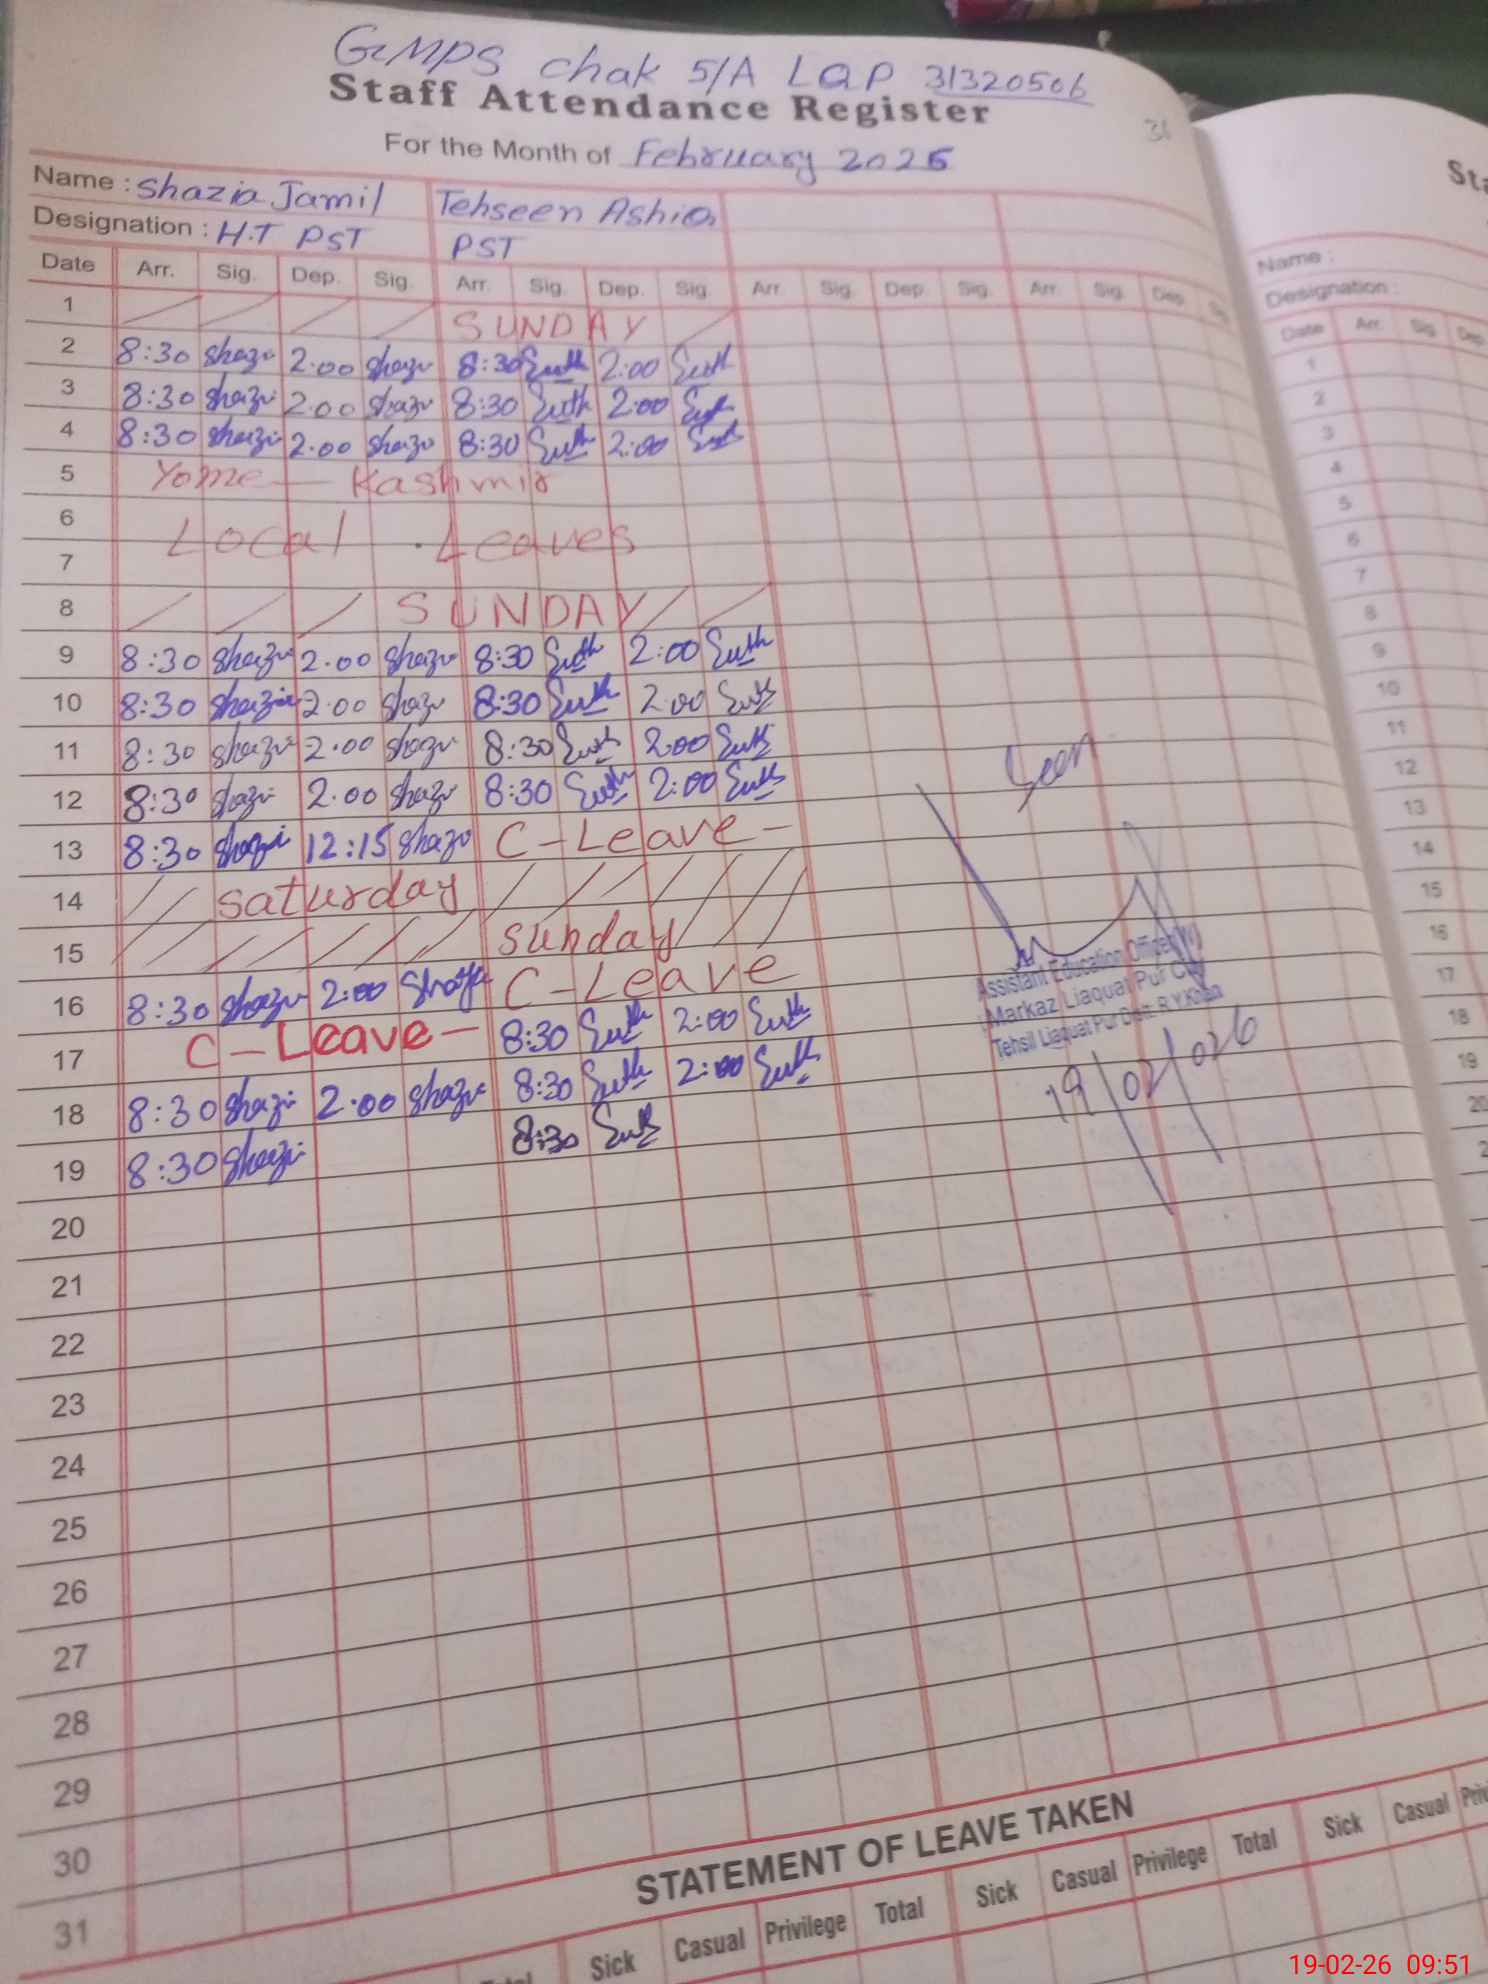 GMPS chak 5/A LQP 31320506
Staff Attendance Register
31
For the Month of February 2026
Name : Shazia Jamil Tehseen Ashiq
Designation : H.T PST PST
Date Arr. Sig. Dep. Sig. Arr. Sig. Dep. Sig. Arr. Sig. Dep. Sig. Arr. Sig. Dep. Sig.
1 SUNDAY
2 8:30 2:00 8:30 2:00
3 8:30 2:00 8:30 2:00
4 8:30 2:00 8:30 2:00
5 Yome - Kashmir
6 Local Leaves
7
8 SUNDAY
9 8:30 2:00 8:30 2:00
10 8:30 2:00 8:30 2:00
11 8:30 2:00 8:30 2:00
12 8:30 2:00 8:30 2:00
13 8:30 12:15 C-Leave-
14 Saturday
15 Sunday
16 8:30 2:00 C-Leave
17 C-Leave- 8:30 2:00
18 8:30 2:00 8:30 2:00
19 8:30 8:30
20
21
22
23
24
25
26
27
28
29
30
31
Seen
Assistant Education Officer (W)
Markaz Liaquat Pur
Tehsil Liaquat Pur Distt: R.Y.Khan
19/02/026
STATEMENT OF LEAVE TAKEN
Sick Casual Privilege Total Sick Casual Privilege Total Sick Casual
Name :
Designation :
Date Arr. Sig. Dep.
1
2
3
4
5
6
7
8
9
10
11
12
13
14
15
16
17
18
19
20
19-02-26 09:51